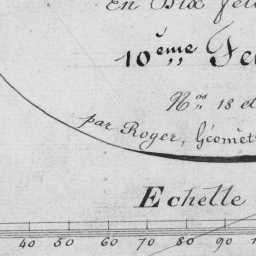 En Dix feu
10ème Feu
Nos 18 et
par Roger, Géomèt
Echelle
40 50 60 70 80 90 1